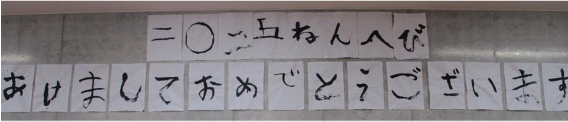 二〇二五ねんへび
あけましておめでとうございます